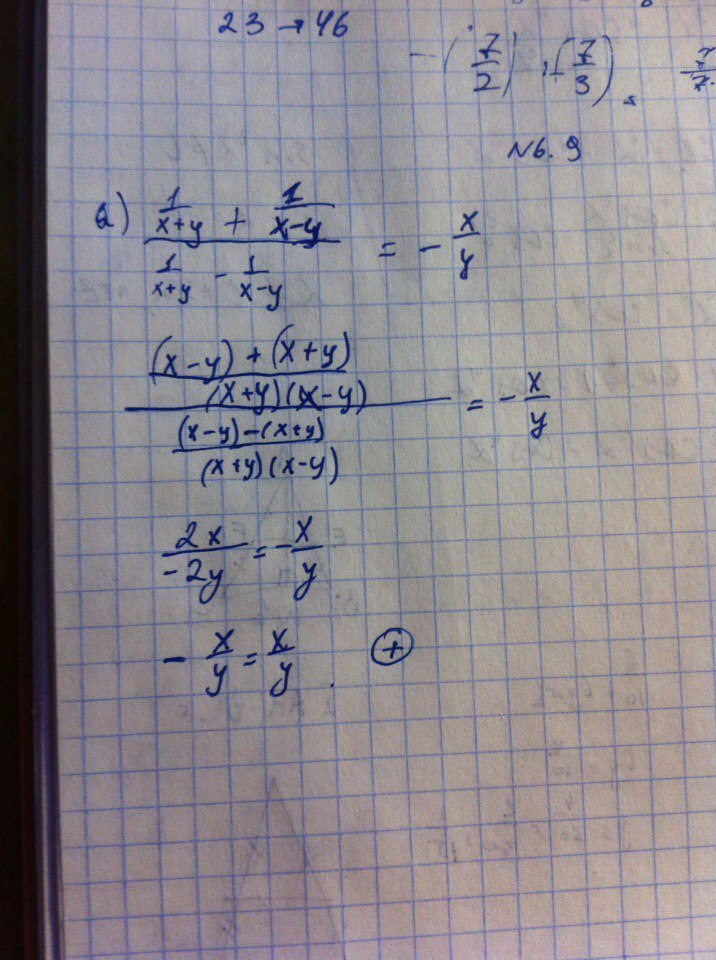 23 → 46
-(7/2), (7/3).
N6.9
a) (1/(x+y) + 1/(x-y)) / (1/(x+y) - 1/(x-y)) = - x/y
(((x-y) + (x+y)) / ((x+y)(x-y))) / (((x-y)-(x+y)) / ((x+y)(x-y))) = - x/y
2x/-2y = - x/y
- x/y = x/y. +